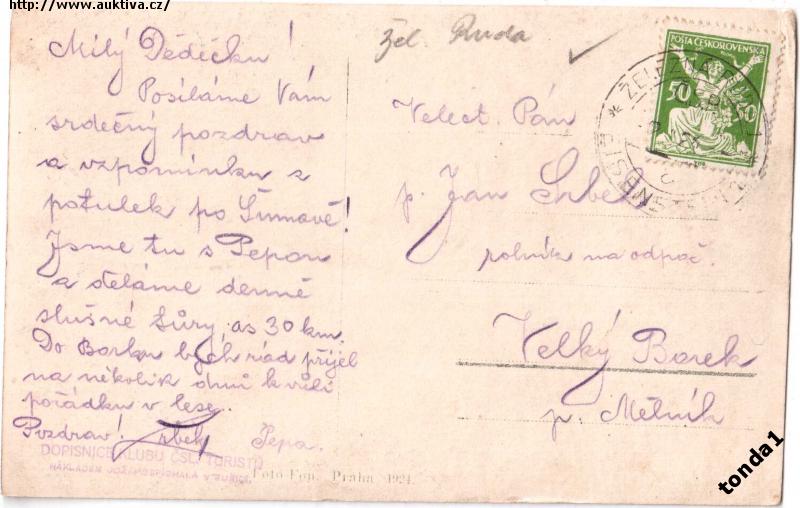 http://www.auktiva.cz/
Žel. Ruda
Milý Dědečku!
Posíláme Vám
srdečný pozdrav
a vzpomínku z
potulek po Šumavě!
Jsme tu s Pepou
a děláme denně
slušné túry, as 30 km.
Do Borku bych rád přijel
na několik dnů k vůli
pořádku v lese.
Pozdrav! Pepa.
DOPISNICE KLUBU ČSL. TURISTŮ
NÁKLADEM V SUŠICI
Foto Fon, Praha 1924.
POŠTA ČESKOSLOVENSKÁ
50 50
ŽELEZNÁ RUDA
EISENSTEIN
Velect. Pán
p. Jan Srbek
rolník na odpoč.
Velký Borek
p. Mělník
tonda1